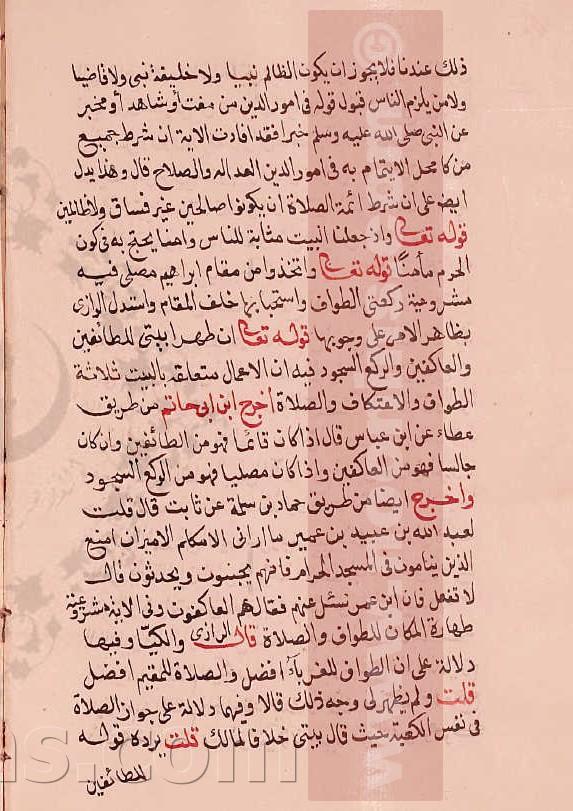 ذلك عندنا فلا يجوز ان يكون الظالم نبيا ولا خليفة نبى ولا قاضيا
ولا من يلزم الناس قبول قوله فى امور الدين من مفت أو شاهد أو مخبر
عن النبى صلى الله عليه وسلم خبرا فقد افادت الاية ان شرط جميع
من كا محل الايتمام به فى امور الدين العداله والصلاح قال وهذا يدل
ايضا على ان شرط ائمة الصلاة ان يكونوا صالحين غير فساق ولا ظالمين
قوله تعالى واذ جعلنا البيت مثابة للناس وامنا يحتج به فى كون
الحرم مأمنا قوله تعالى واتخذوا من مقام ابراهيم مصلى فيه
مشروعية ركعتى الطواف واستحبابها خلف المقام واستدل الرازى
بظاهر الامر على وجوبها قوله تعالى ان طهرا بيتى للطائفين
والعاكفين والركع السجود فيه ان الاعمال متعلقه بالبيت ثلاثة
الطواف والاعتكاف والصلاة اخرج ابن ابى حاتم من طريق
عطاء عن ابن عباس قال اذا كان قائما فهو من الطائفين وان كان
جالسا فهو من العاكفين واذا كان مصليا فهو من الركع السجود
واخرج ايضا من طريق حماد بن سلمة عن ثابت قال قلت
لعبد الله بن عبيد بن عمير ما ارانى الا مكلم الامير ان امنع
الذين ينامون فى المسجد الحرام فانهم يجنبون ويحدثون قال
لا تفعل فان ابن عمر سئل عنهم فقال هم العاكفون وفى الاية مشروعية
طهارة المكان للطواف والصلاة قال الرازى والكيا وفيها
دلالة على ان الطواف للغرباء افضل والصلاة للمقيم افضل
قلت ولم يظهر لى وجه ذلك قالا وفيها دلالة على جواز الصلاة
فى نفس الكعبة حيث قال بيتى خلافا لمالك قلت يرده قوله
للطائفين